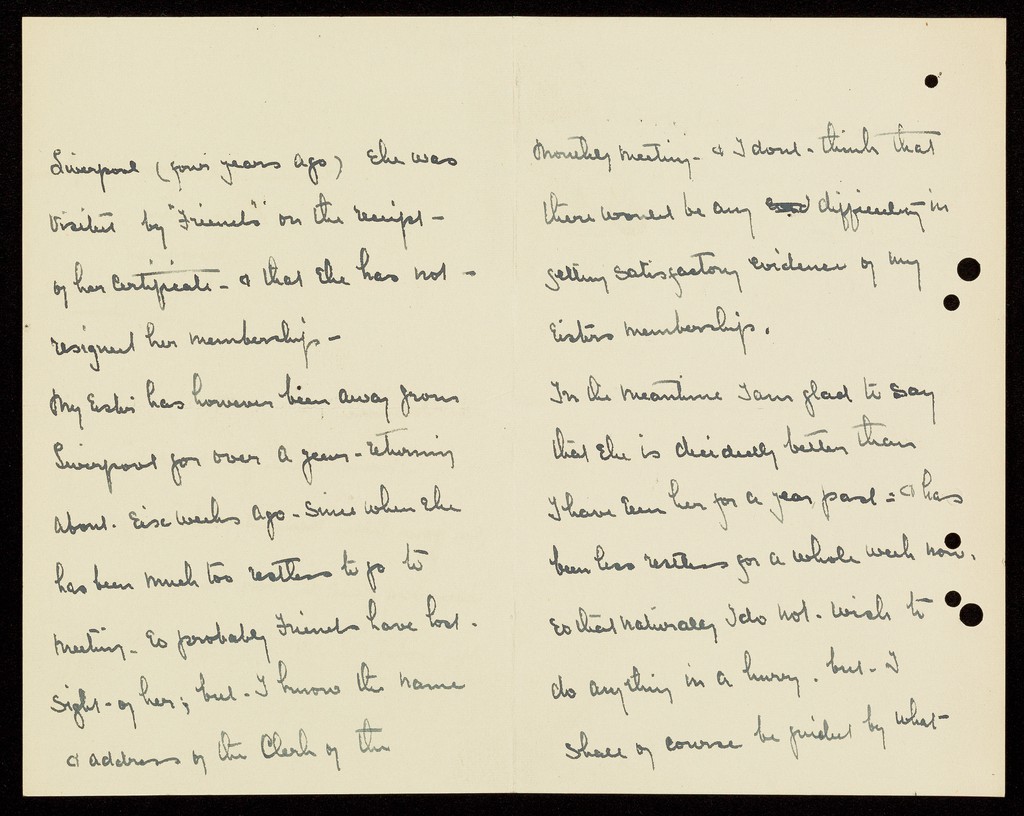 Liverpool (four years ago) she was
visited by "Friends" on the receipt -
of her certificate - & that she has not -
resigned her membership -
My sister has however been away from
Liverpool for over a year - returning
about. six weeks ago - since when she
has been much too restless to go to
meeting. So probably Friends have lost.
sight - of her; but - I know the name
& address of the Clerk of the
Monthly Meeting - & I dont - think that
there would be any difficulty in
getting satisfactory evidence of my
sisters membership.
In the meantime I am glad to say
that she is decidedly better than
I have seen her for a year past = & has
been less restless for a whole week now.
so that naturally I do not. wish to
do anything in a hurry. but - I
shall of course be guided by what -